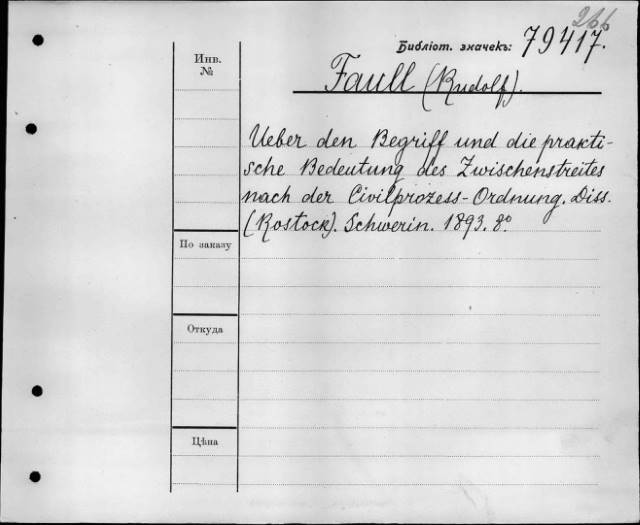 266
Библіот. значекъ: 79417.
Инв.
№
Faull (Rudolf).
Ueber den Begriff und die prakti-
sche Bedeutung des Zwischenstreites
nach der Civilprozess-Ordnung. Diss.
(Rostock). Schwerin. 1893. 8º
По заказу
Откуда
Цѣна